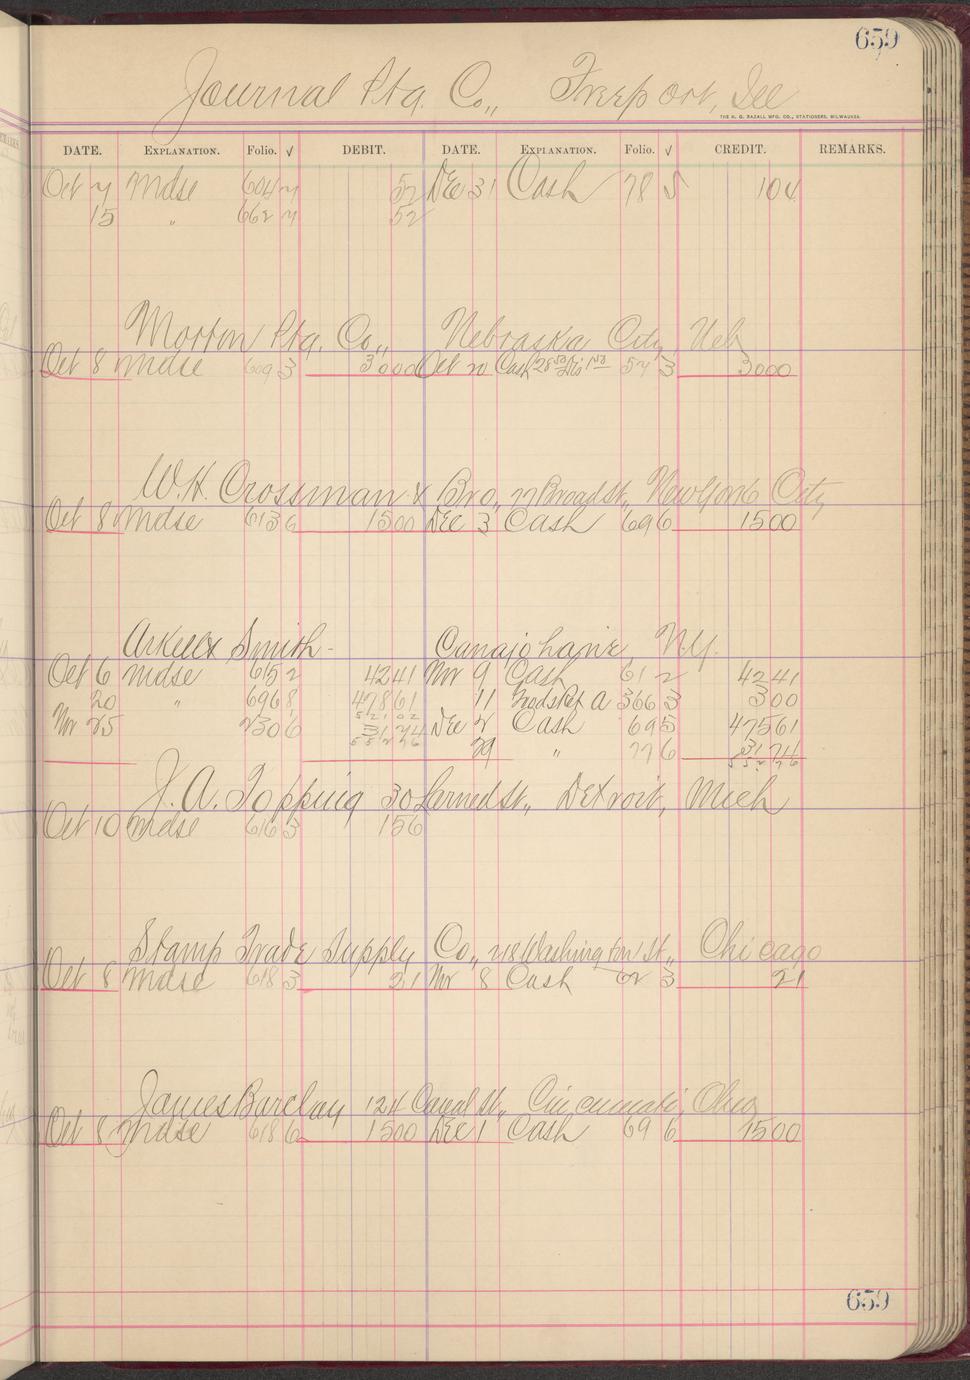 659
Journal Ptg. Co., Freeport, Ill
THE H. G. RAZALL MFG. CO., STATIONERS, MILWAUKEE.
DATE. EXPLANATION. Folio. √ DEBIT. DATE. EXPLANATION. Folio. √ CREDIT. REMARKS.
Oct 7 Mdse 604 7 52 Dec 31 Cash 78 5 104
15 " 662 7 52
Morton Ptg. Co., Nebraska City, Neb
Oct 8 Mdse 609 3 3000 Oct 20 Cash 57 3 3000
W. H. Crossman & Bro., 77 Broad St., New York City
Oct 8 Mdse 613 6 1500 Dec 3 Cash 69 6 1500
Arkell & Smith - Canajoharie, N.Y.
Oct 6 Mdse 615 2 4241 Nov 9 Cash 61 2 4241
20 " 696 8 47861 11 Mdse Ret A 366 3 300
52102
Nov 25 230 6 3174 Dec 2 Cash 69 5 47561
55276 29 " 77 6 3174
55276
J. A. Topping 30 Larned St., Detroit, Mich
Oct 10 Mdse 616 3 156
Stamp Trade Supply Co., 218 Washington St., Chicago
Oct 8 Mdse 618 3 21 Nov 8 Cash 62 3 21
James Barclay 124 Canal St., Cincinnati, Ohio
Oct 8 Mdse 618 6 1500 Dec 1 Cash 69 6 1500
659